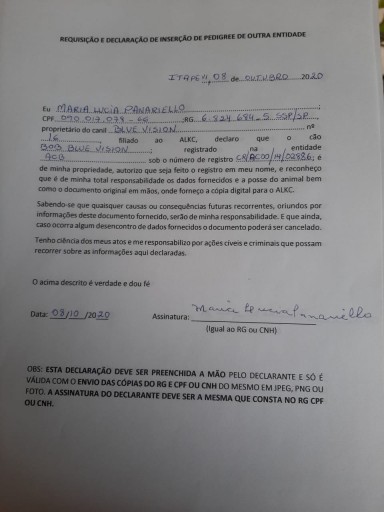 REQUISIÇÃO E DECLARAÇÃO DE INSERÇÃO DE PEDIGREE DE OUTRA ENTIDADE
ITAPEVI, 08 de OUTUBRO 2020
Eu MARIA LUCIA PANARIELLO;
CPF 090.017.078-, RG 6.824.684-5 SSP/SP,
proprietário do canil BLUE VISION, nº
16, filiado ao ALKC, declaro que o cão
BOB BLUE VISION, registrado na entidade
sob o número de registro; é
de minha propriedade, autorizo que seja feito o registro em meu nome, e reconheço
que é de minha total responsabilidade os dados fornecidos e a posse do animal bem
como o documento original em mãos, onde forneço a cópia digital para o ALKC.
Sabendo-se que quaisquer causas ou consequências futuras recorrentes, oriundos por
informações deste documento fornecido, serão de minha responsabilidade. E que ainda,
caso ocorra algum desencontro de dados fornecidos o documento poderá ser cancelado.
Tenho ciência dos meus atos e me responsabilizo por ações cíveis e criminais que possam
recorrer sobre as informações aqui declaradas.
O acima descrito é verdade e dou fé
Data: 08/10/2020 Assinatura: Maria Lucia Panariello
(Igual ao RG ou CNH)
OBS: ESTA DECLARAÇÃO DEVE SER PREENCHIDA A MÃO PELO DECLARANTE E SÓ É
VÁLIDA COM O ENVIO DAS CÓPIAS DO RG E CPF OU CNH DO MESMO EM JPEG, PNG OU
FOTO. A ASSINATURA DO DECLARANTE DEVE SER A MESMA QUE CONSTA NO RG CPF
OU CNH.